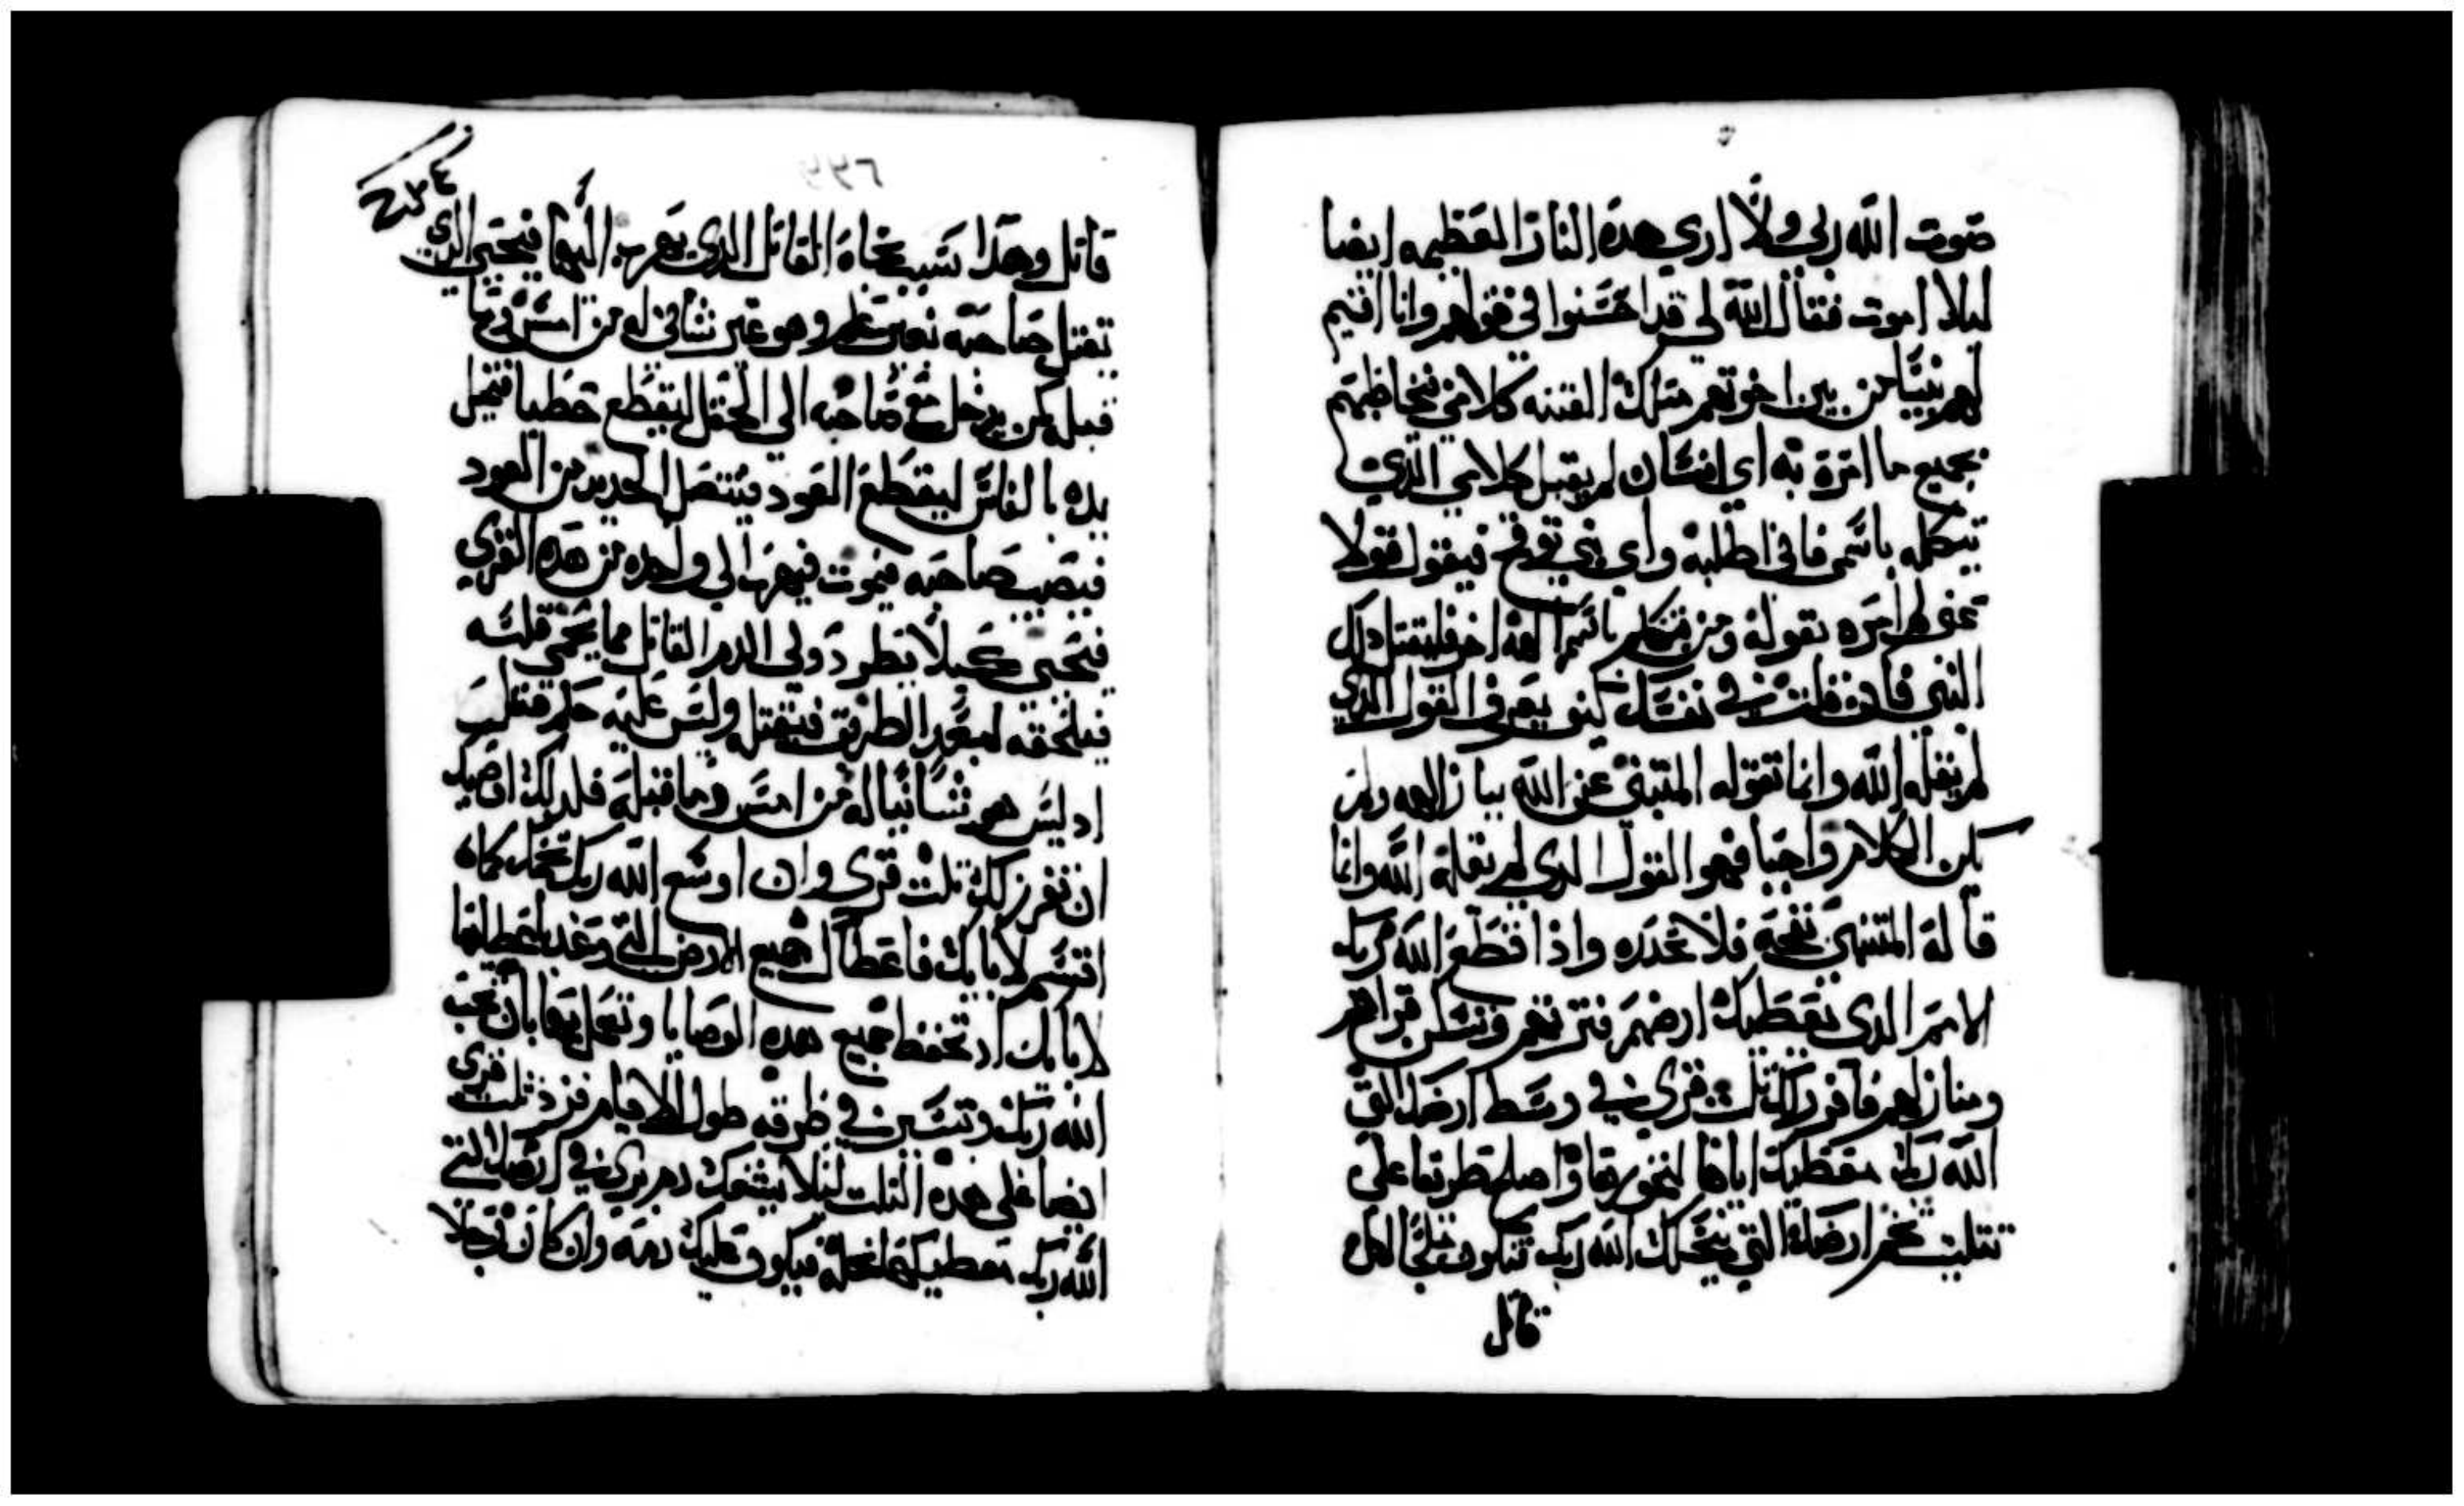 صوت الله ربي ولا اري هده النار العظيمه ايضا
ليلا اموت فقال الله لي قد احسنوا في قولهم وانا اقيم
لهم نبيا من بين اخوتهم متلك القنه كلامي فيخاطبهم
بجميع ما امره به اي انسان لم يقبل كلامي الدي
يتكلم باسمي فاني اطلبه واي نبي توقح فيقول قولا
عني لم امره بقوله ومن تكلم باسم الهه اخر فليقتل دلك
النبي فان قلت في نفسك كيف يعرف القول الدي
لم يقله الله وانما تقوله المتنبي عن الله بيا زالهه ولم
يكن الكلام واجبا فهو القول الدي لم يقله الله وانما
قاله المتنبي بقحه فلا تحدره واذا قطع الله ربك
الامم الدي يعطيك ارضهم فترتهم وتسكن قراهم
ومنازلهم فافرز لك تلت قري في وسط ارضك التي
الله ربك معطيك اياها لتحورها واصلح طريقها علي
تتليت تخم ارضك التي ينحلك الله ربك تنكون ملجا لكل
قاتل
٢٣٤
قاتل وهدا سبب نجاه القاتل الدي يهرب اليها فيحيي الدي
يقتل صاحبه بغير علم وهو غير شاني له من امس وما
قبله كمن يدخل مع صاحبه الي الحقل ليقطع حطبا فتميل
يده بالفاس ليقطع العود فينتصل الحديد من العود
فيصيب صاحبه فيموت فيهرب الي واحده من هده القري
فيحيي كيلا يطرد ولي الدم القاتل مما يحمي قلبه
فيلحقه لبعد الطريق فيقتله وليس عليه حكم قتل
اد ليس هو شانيا له من امس وما قبله فلدلك اوصيك
ان تفرز لك تلت قري وان اوسع الله ربك تخمك كما
اقسم لابايك فاعطاك جميع الارض التي وعد باعطايها
لابايك اد تحفظ جميع هده الوصايا وتعمل بها بان تحب
الله ربك وتسير في طرقه طول الايام فزد تلت قري
ايضا علي هده التلت ليلا يسفك دم بري في ارضك التي
الله ربك معطيكها نحله فيكون عليك دمه وان كان رجلا